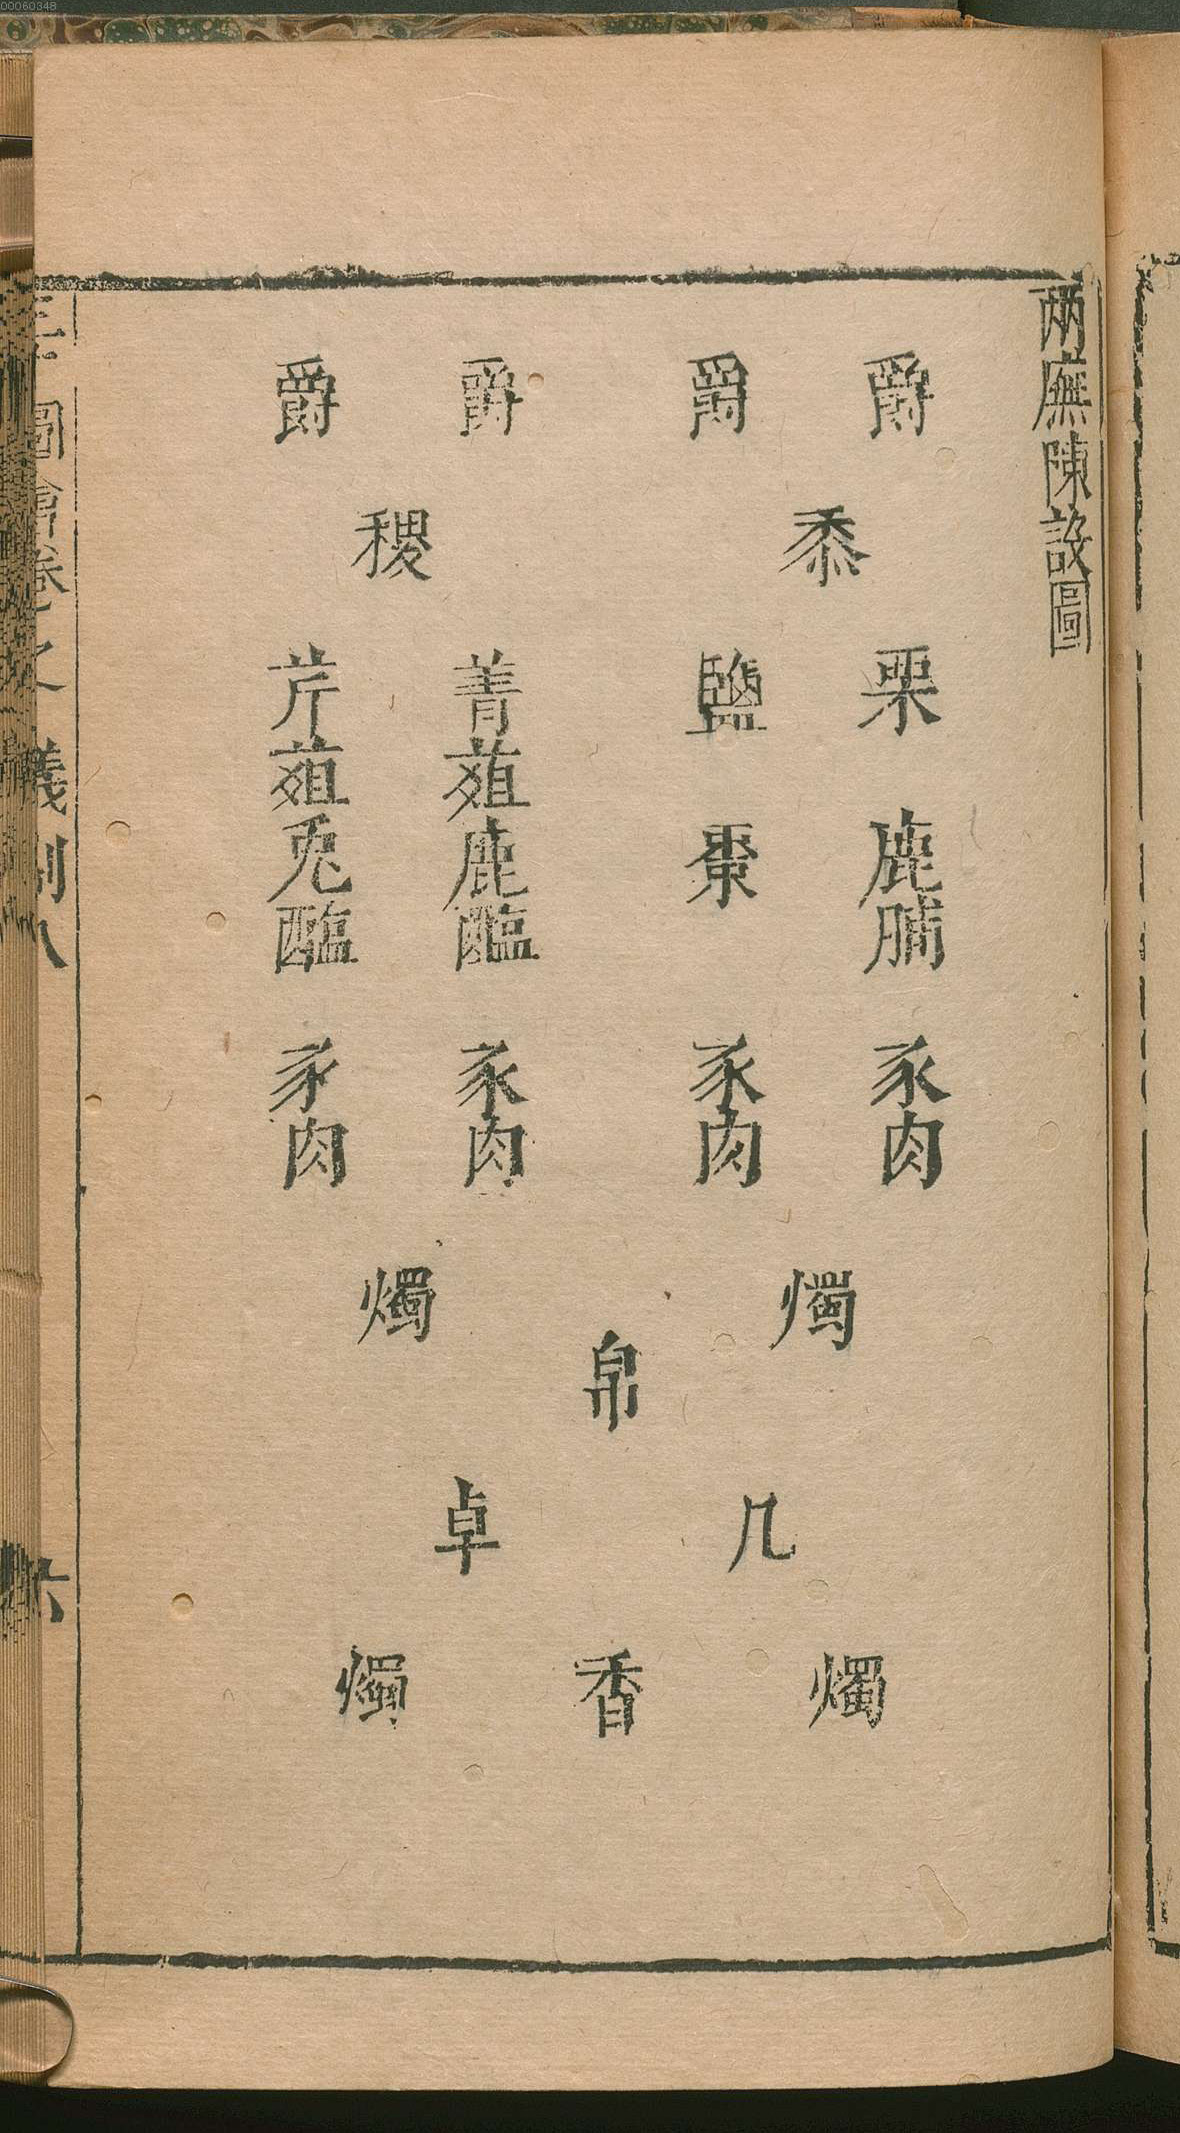 00060348
兩廡陳設圖
爵 爵 爵 爵
黍 稷
栗 鹽 菁菹 芹菹
鹿脯 棗 鹿醢 兎醢
豕肉 豕肉 豕肉 豕肉
燭 燭
帛
几 卓
燭 香 燭
圖會卷之 儀制八
六